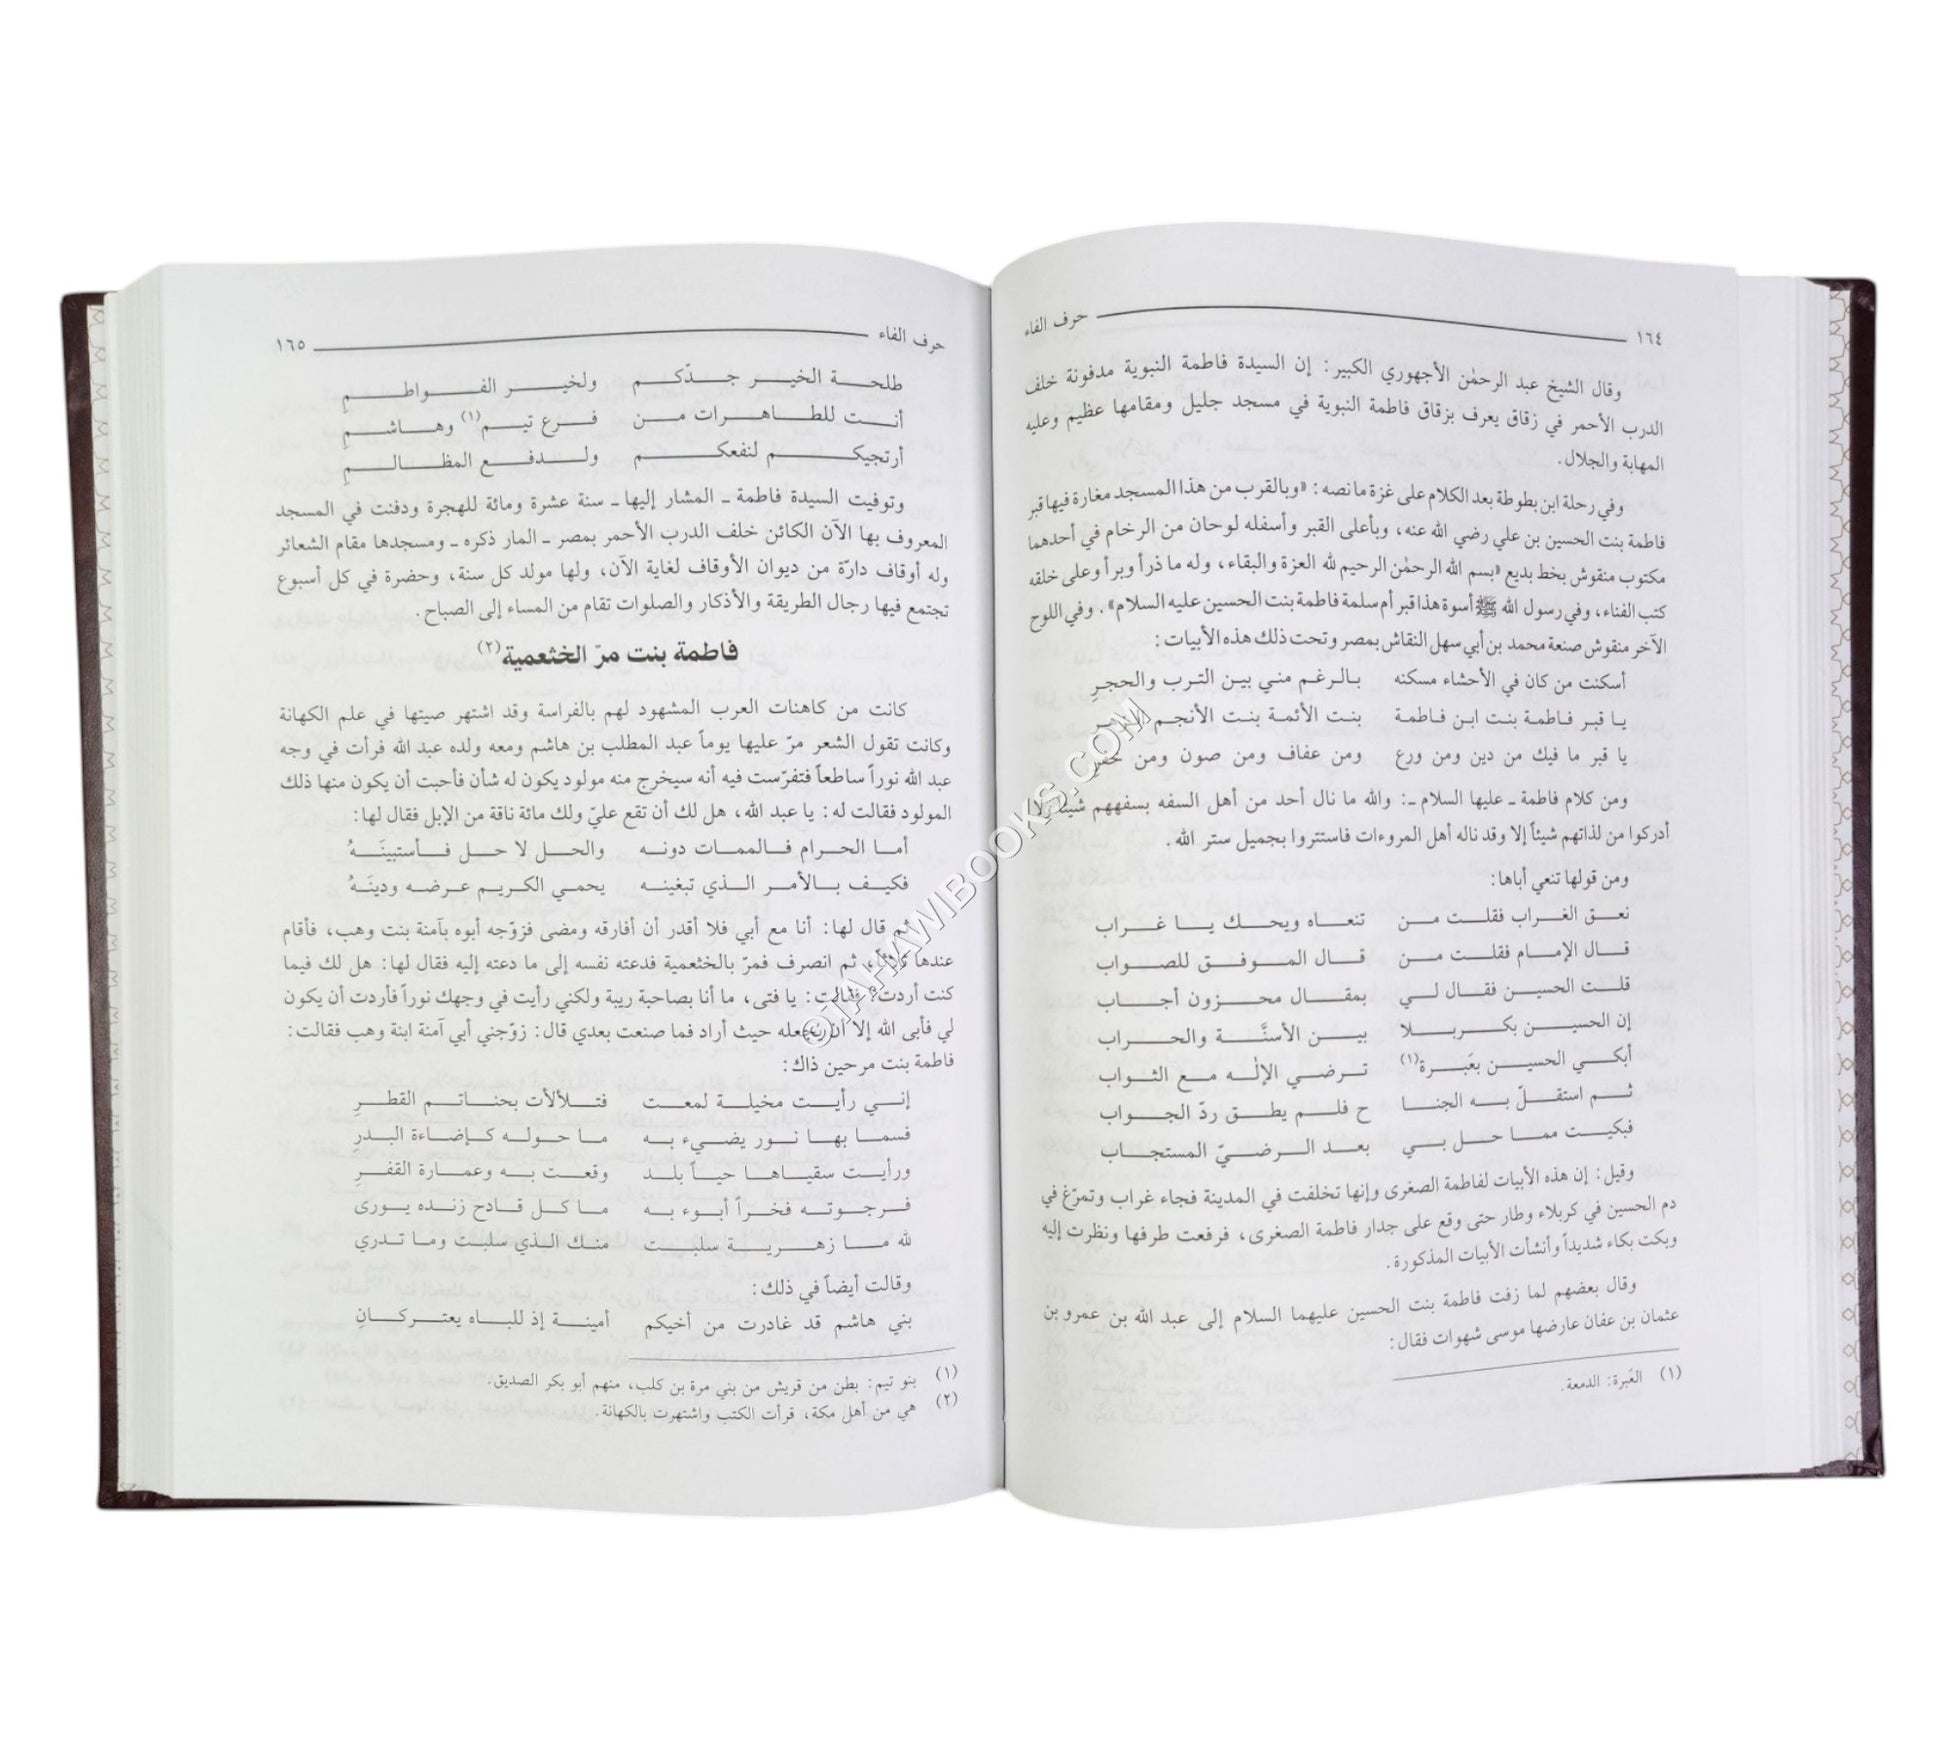 ١٦٤ حرف الفاء
وقال الشيخ عبد الرحمٰن الأجهوري الكبير: إن السيدة فاطمة النبوية مدفونة خلف
الدرب الأحمر في زقاق يعرف بزقاق فاطمة النبوية في مسجد جليل ومقامها عظيم وعليه
المهابة والجلال.
وفي رحلة ابن بطوطة بعد الكلام على غزة ما نصه: «وبالقرب من هذا المسجد مغارة فيها قبر
فاطمة بنت الحسين بن علي رضي الله عنه، وبأعلى القبر وأسفله لوحان من الرخام في أحدهما
مكتوب منقوش بخط بديع «بسم الله الرحمٰن الرحيم لله العزة والبقاء، وله ما ذرأ وبرأ وعلى خلقه
كتب الفناء، وفي رسول الله ﷺ أسوة هذا قبر أم سلمة فاطمة بنت الحسين عليه السلام». وفي اللوح
الآخر منقوش صنعة محمد بن أبي سهل النقاش بمصر وتحت ذلك هذه الأبيات:
أسكنت من كان في الأحشاء مسكنه بالرغم مني بين الترب والحجرِ
يا قبر فاطمة بنت ابن فاطمة بنت الأئمة بنت الأنجم
يا قبر ما فيك من دين ومن ورع ومن عفاف ومن صون ومن خفرِ
ومن كلام فاطمة ـ عليها السلام ـ: والله ما نال أحد من أهل السفه بسفههم شيئاً ولا
أدركوا من لذاتهم شيئاً إلا وقد ناله أهل المروءات فاستتروا بجميل ستر الله.
ومن قولها تنعي أباها:
نعق الغراب فقلت من تنعاه ويحك يا غراب
قال الإمام فقلت من قال الموفق للصواب
قلت الحسين فقال لي بمقال محزون أجاب
إن الحسين بكربلا بين الأسنَّة والحراب
أبكي الحسين بعَبرة(١) ترضي الإلٰه مع الثواب
ثم استقلّ به الجنا ح فلم يطق ردّ الجواب
فبكيت مما حل بي بعد الرضيّ المستجاب
وقيل: إن هذه الأبيات لفاطمة الصغرى وإنها تخلفت في المدينة فجاء غراب وتمرّغ في
دم الحسين في كربلاء وطار حتى وقع على جدار فاطمة الصغرى، فرفعت طرفها ونظرت إليه
وبكت بكاء شديداً وأنشأت الأبيات المذكورة.
وقال بعضهم لما زفت فاطمة بنت الحسين عليهما السلام إلى عبد الله بن عمرو بن
عثمان بن عفان عارضها موسى شهوات فقال:
(١) العَبرة: الدمعة.
حرف الفاء ١٦٥
طلحة الخير جدّكم ولخير الفواطمِ
أنت للطاهرات من فرع تيم(١) وهاشمِ
أرتجيكم لنفعكم ولدفع المظالمِ
وتوفيت السيدة فاطمة ـ المشار إليها ـ سنة عشرة ومائة للهجرة ودفنت في المسجد
المعروف بها الآن الكائن خلف الدرب الأحمر بمصر ـ المار ذكره ـ ومسجدها مقام الشعائر
وله أوقاف دارّة من ديوان الأوقاف لغاية الآن، ولها مولد كل سنة، وحضرة في كل أسبوع
تجتمع فيها رجال الطريقة والأذكار والصلوات تقام من المساء إلى الصباح.
فاطمة بنت مرّ الخثعمية(٢)
كانت من كاهنات العرب المشهود لهم بالفراسة وقد اشتهر صيتها في علم الكهانة
وكانت تقول الشعر مرّ عليها يوماً عبد المطلب بن هاشم ومعه ولده عبد الله فرأت في وجه
عبد الله نوراً ساطعاً فتفرّست فيه أنه سيخرج منه مولود يكون له شأن فأحبت أن يكون منها ذلك
المولود فقالت له: يا عبد الله، هل لك أن تقع عليّ ولك مائة ناقة من الإبل فقال لها:
أما الحرام فالممات دونه والحل لا حل فأستبينَهُ
فكيف بالأمر الذي تبغينه يحمي الكريم عرضه ودينَهُ
ثم قال لها: أنا مع أبي فلا أقدر أن أفارقه ومضى فزوّجه أبوه بآمنة بنت وهب، فأقام
عندها ثلاثاً، ثم انصرف فمرّ بالخثعمية فدعته نفسه إلى ما دعته إليه فقال لها: هل لك فيما
كنت أردت؟ فقالت: يا فتى، ما أنا بصاحبة ريبة ولكني رأيت في وجهك نوراً فأردت أن يكون
لي فأبى الله إلا أن يجعله حيث أراد فما صنعت بعدي قال: زوّجني أبي آمنة ابنة وهب فقالت:
فاطمة بنت مر حين ذاك:
إني رأيت مخيلة لمعت فتلألأت بحناتم القطرِ
فسما بها نور يضيء به ما حوله كإضاءة البدرِ
ورأيت سقياها حياً بلد وقعت به وعمارة القفرِ
فرجوته فخراً أبوء به ما كل قادح زنده يورى
لله ما زهرية سلبت منك الذي سلبت وما تدري
وقالت أيضاً في ذلك:
بني هاشم قد غادرت من أخيكم أمينة إذ للباه يعتركانِ
(١) بنو تيم: بطن من قريش من بني مرة بن كلب، منهم أبو بكر الصديق.
(٢) هي من أهل مكة، قرأت الكتب واشتهرت بالكهانة.
©TAHAWIBOOKS.COM